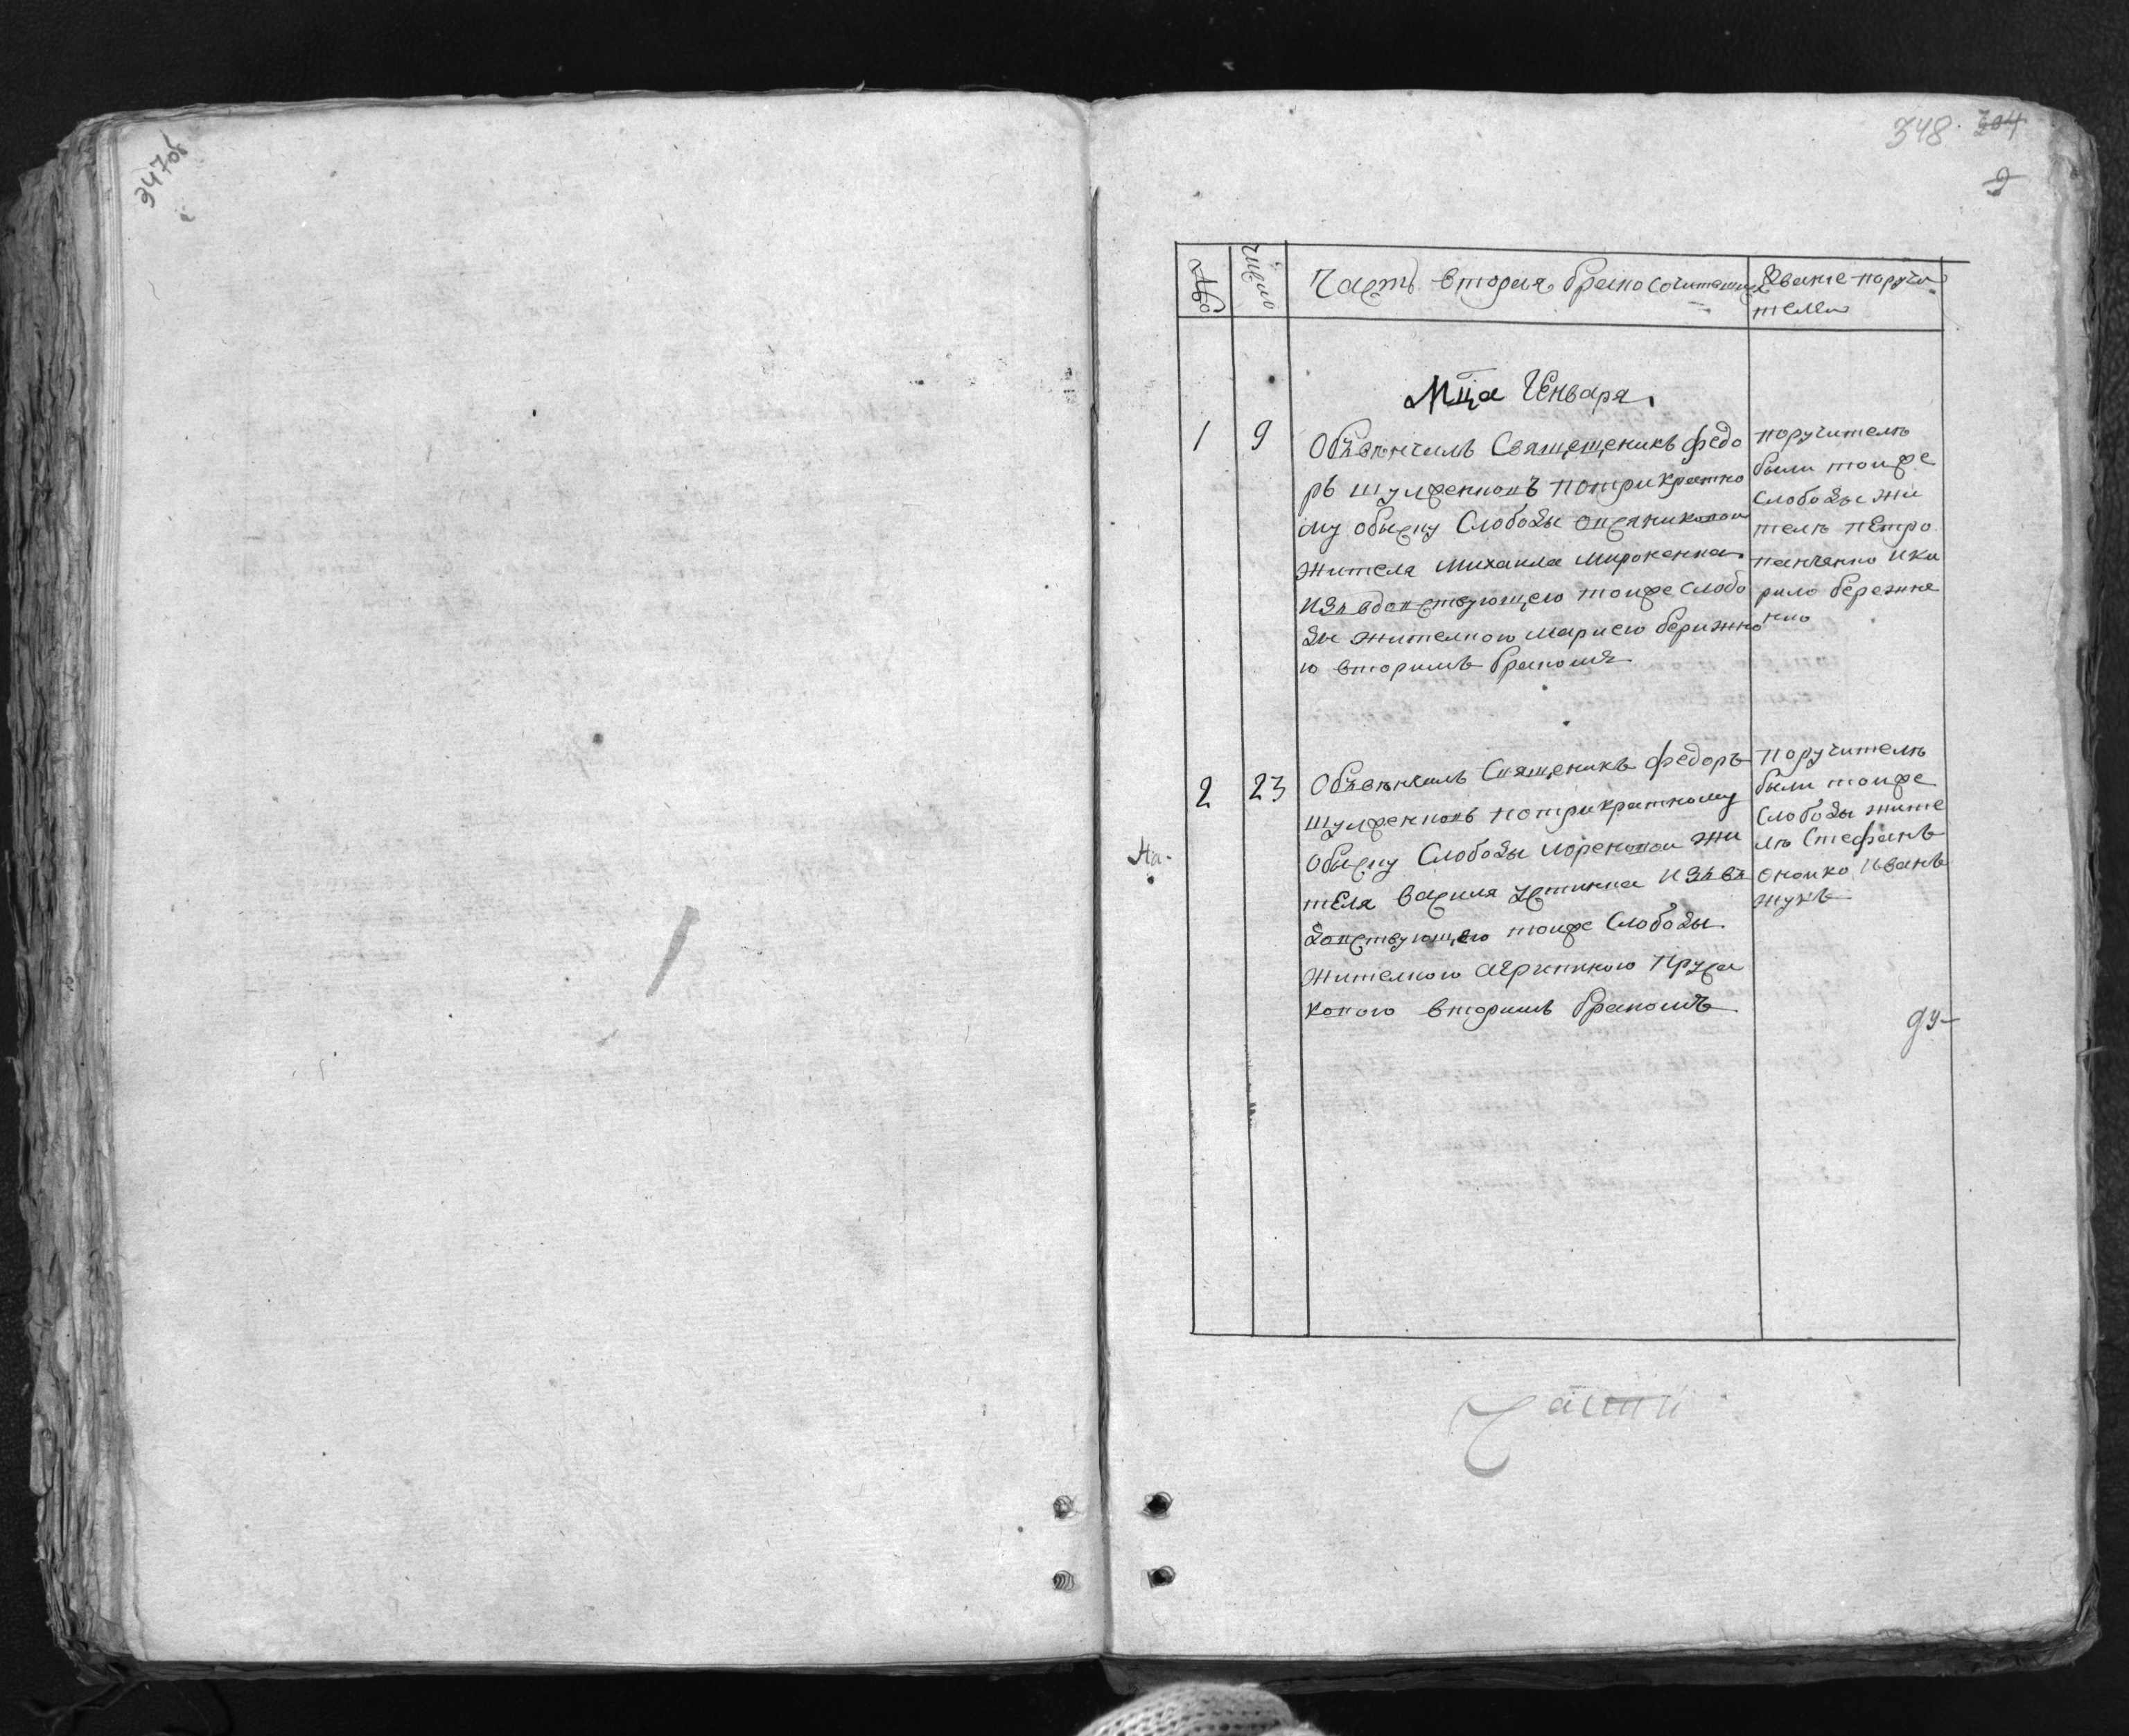 347об
348 304
2
Число
Часть вторая бракосочитавшихся
Звание поручи
телей
Мца Генваря
1 9
Обвенчилъ Священникъ Федо
ръ Шулженковъ потрикратно
му обыску Слободы
жителя Михаила Мироненка
изъ вдовствующею тоиже Слобо
ды жителкою Мариею Берижно
ю вторимъ бракомъ
поручителѣ
были тоиже
Слободы жи
телѣ Петро
Панченко Ики
рило Бережне
нко
2 23
Обвенчилъ Священикъ Федоръ
Шулженковъ потрикратному
обыску Слободы жи
теля Василя Устинка изъ в
довствующею тоиже Слободы
жителкою Агрипиною Пруса
ковою вторимъ бракомъ
поручителѣ
были тоиже
Слободы жите
лѣ Стефанъ
Онопко Иванъ
жукъ
На-
Части